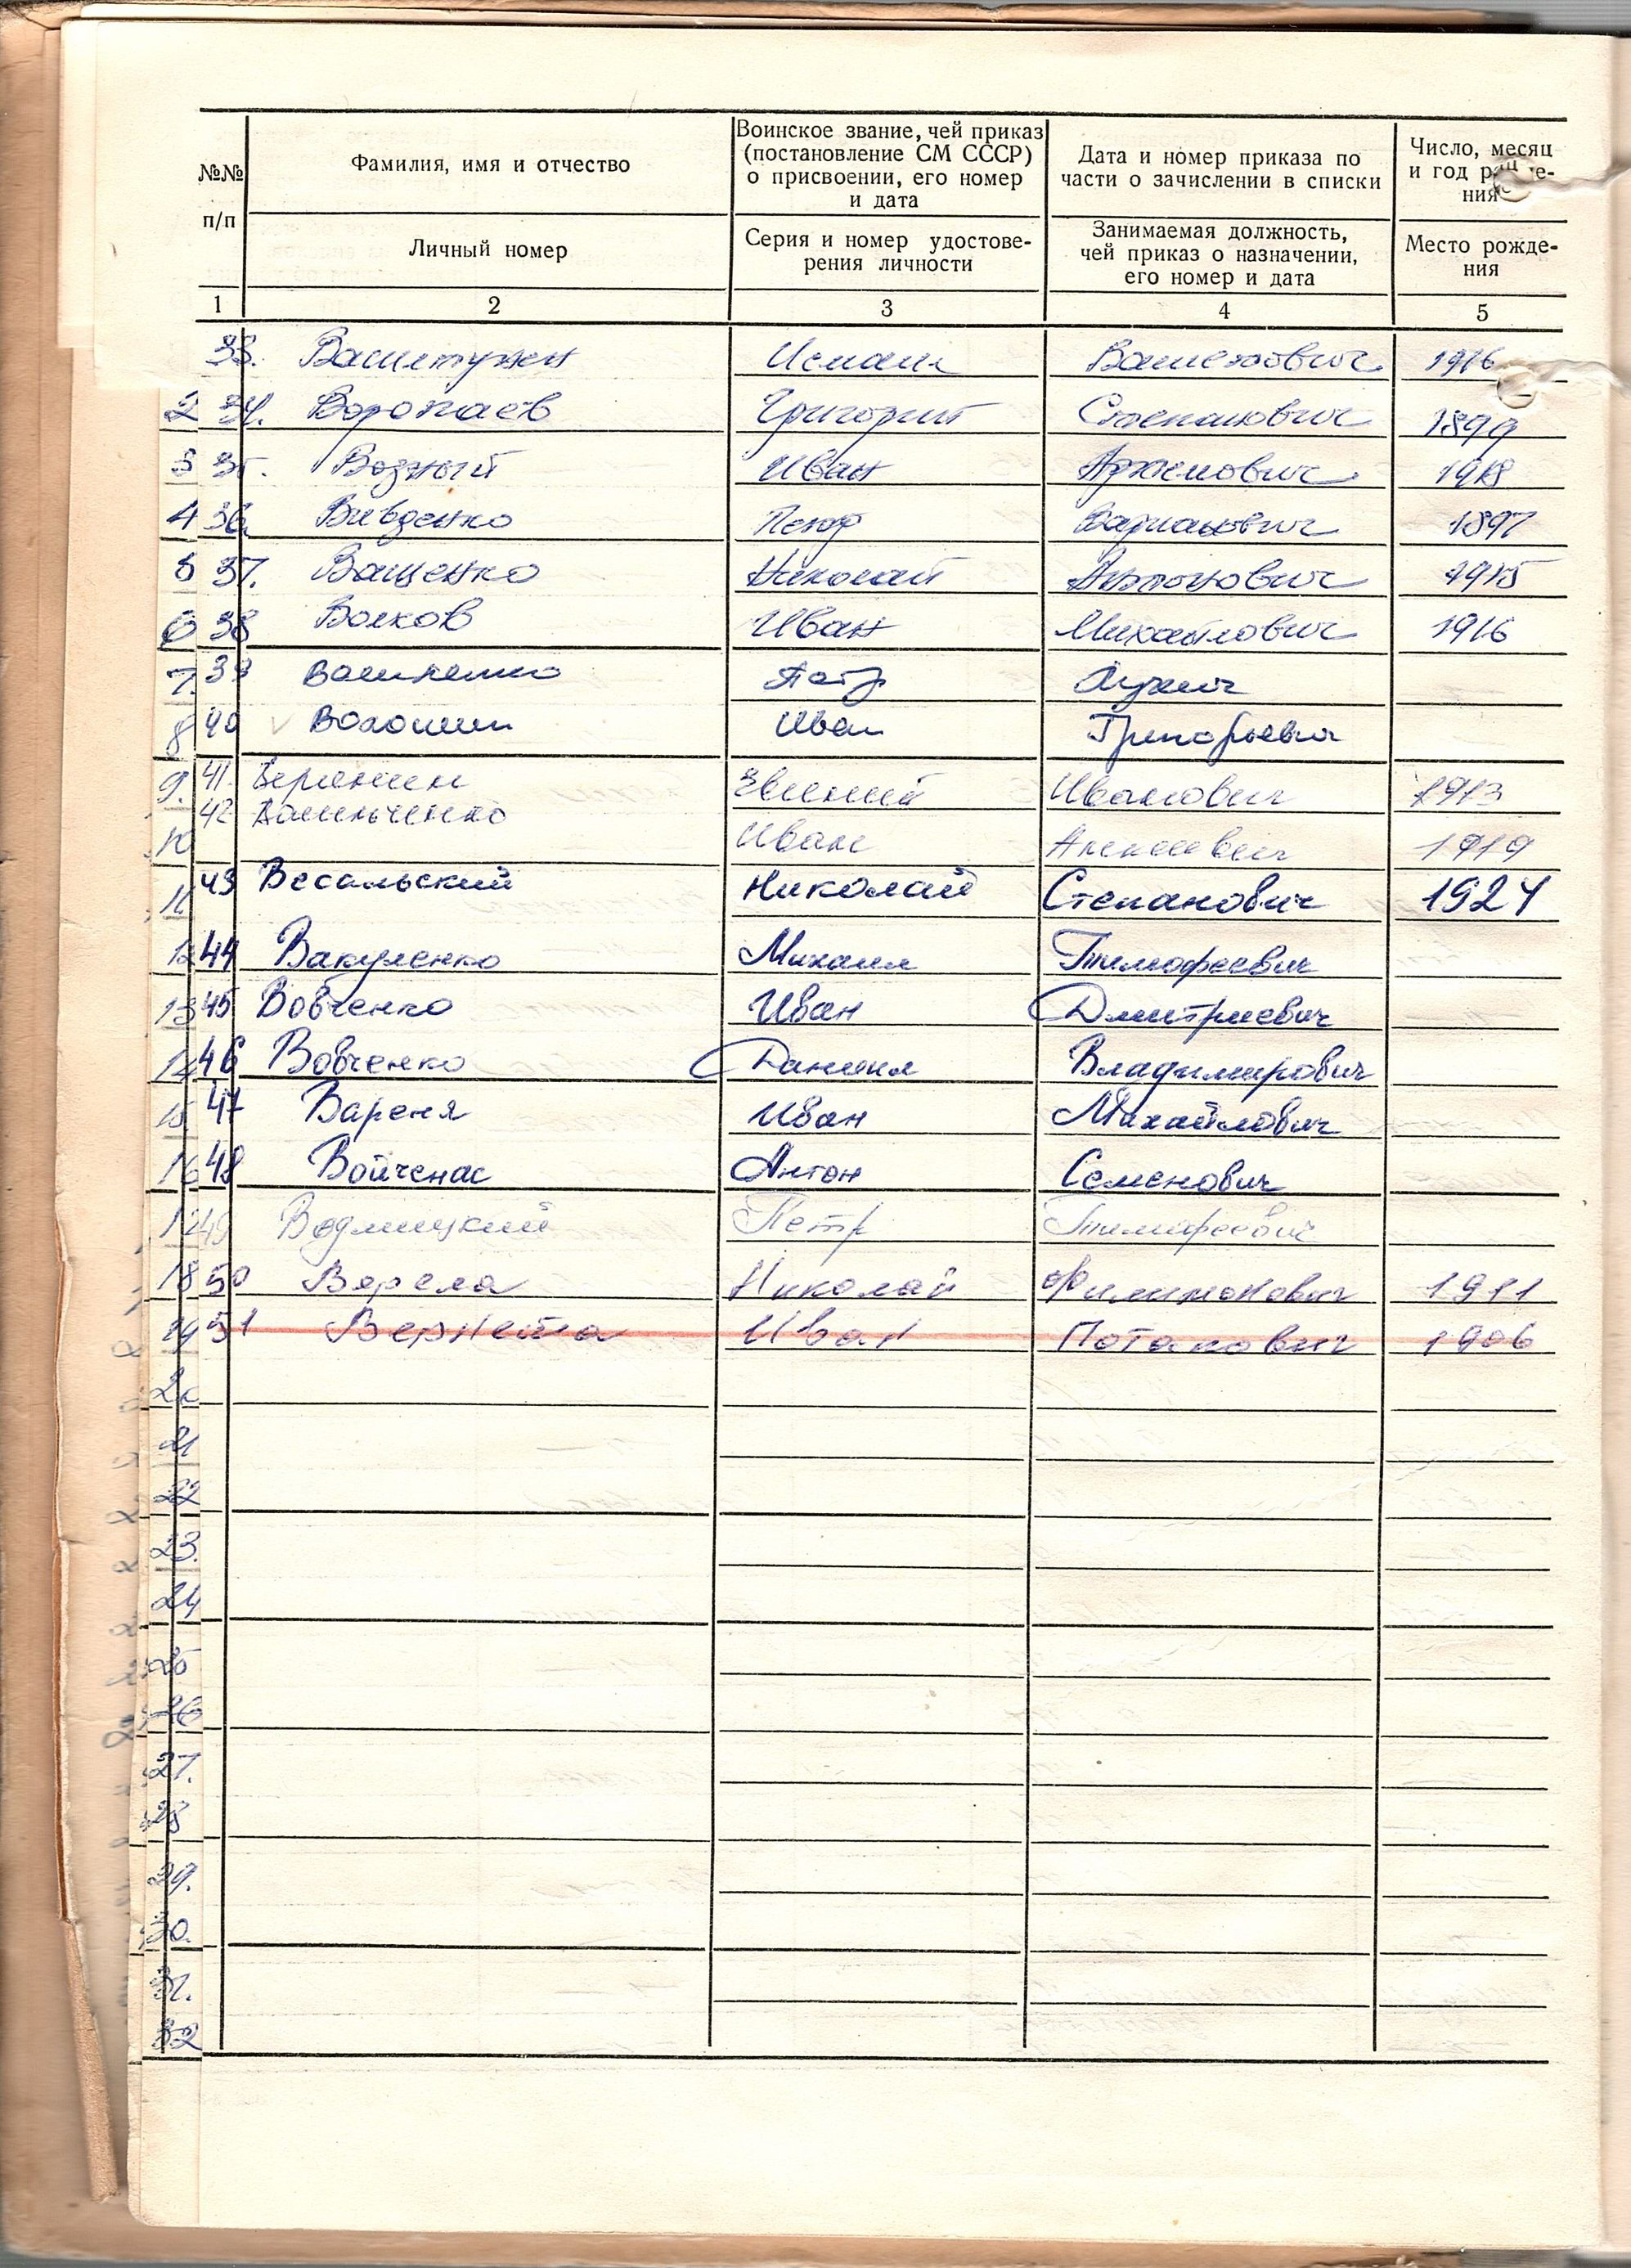 №№ п/п
Фамилия, имя и отчество
Личный номер
Воинское звание, чей приказ
(постановление СМ СССР)
о присвоении, его номер
и дата
Серия и номер удостове-
рения личности
Дата и номер приказа по
части о зачислении в списки
Занимаемая должность,
чей приказ о назначении,
его номер и дата
Число, месяц
и год
ния
Место рожде-
ния
1 2 3 4 5
33. Исмаил 1916
2 34. Воропаев Григорий Степанович 1899
3 35. Возный Иван 1918
4 36 Вивденко Петр 1897
5 37. Ващенко Николай Антонович 1915
6 38 Волков Иван Михайлович 1916
7. 39 Василенко Петр Лукич
8 40 Волошин Иван Григорьевич
9. 41. Евгений Иванович 1913
10 42 Иван Алексеевич 1919
11 43 Весальский Николай Степанович 1924
12 44 Вакуленко Михаил Тимофеевич
13 45 Вовченко Иван Дмитриевич
14 46 Вовченко Даниил Владимирович
15 47 Вареня Иван Михайлович
16 48 Войченас Антон Семенович
17 49 Водлицкий Петр Тимофеевич
18 50 Верела Николай Филимонович 1911
19 51 Вернета Иван Потапович 1906
20
21
22
23.
24
25
26
27.
28
29.
30.
31.
32